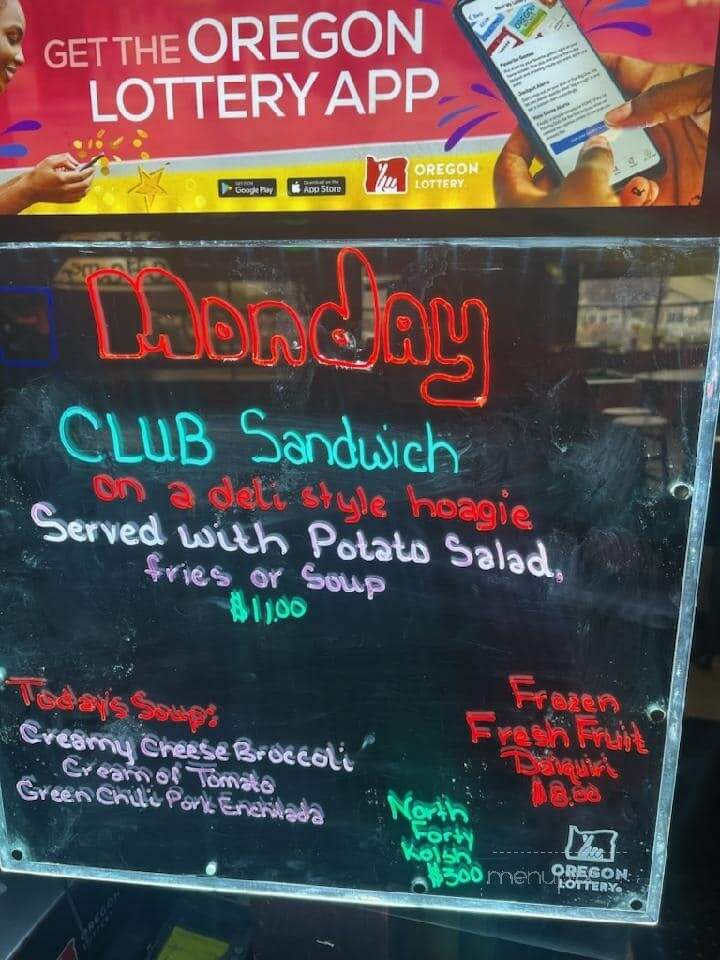 GET THE OREGON
LOTTERY APP
GET IT ON
Google Play
Download on the
App Store
OREGON
LOTTERY
Monday
CLUB Sandwich
on a deli style hoagie
Served with Potato Salad,
fries or Soup
$11.00
Today's Soup:
Creamy Cheese Broccoli
Cream of Tomato
Green Chili Pork Enchilada
Frozen
Fresh Fruit
Daiquiri
$8.00
North
Forty
Kolsh
$300
OREGON
LOTTERY